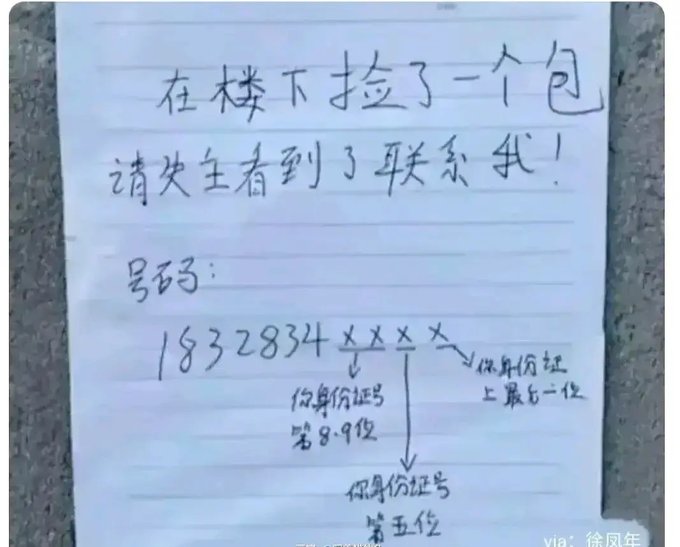 在楼下捡了一个包
请失主看到了联系我!
号码:
1832834××××
你身份证号
第8.9位
你身份证号
第五位
你身份证
上最后一位
via：徐凤年